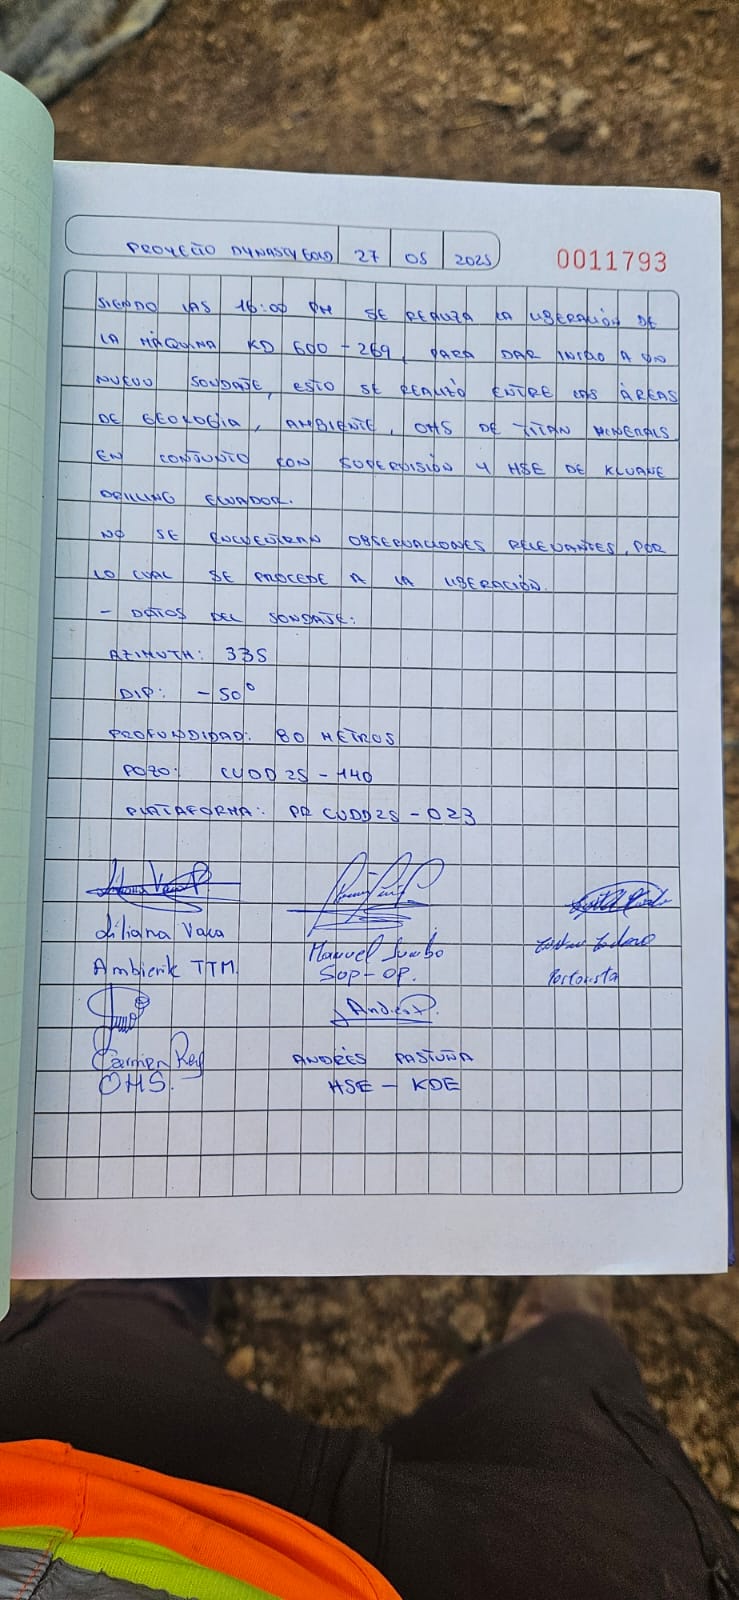 PROYECTO DYNASTY GOLD 27 05 2025 0011793
SIENDO LAS 16:00 PM SE REALIZA LA LIBERACIÓN DE
LA MÁQUINA KD 600-269, PARA DAR INICIO A UN
NUEVO SONDAJE, ESTO SE REALIZÓ ENTRE LAS ÁREAS
DE GEOLOGÍA, AMBIENTE, OHS DE TITAN MINERALS
EN CONJUNTO CON SUPERVISIÓN Y HSE DE KLUANE
DRILLING ECUADOR.
NO SE ENCUENTRAN OBSERVACIONES RELEVANTES, POR
LO CUAL SE PROCEDE A LA LIBERACIÓN.
- DATOS DEL SONDAJE:
AZIMUTH: 335
DIP: -50°
PROFUNDIDAD: 80 METROS
POZO: CUDD25-140
PLATAFORMA: PR CUDD25-023
Liliana Vaca
Manuel Jumbo
Ambiente TTM.
Sup-OP.
Andrés P.
Carmen Rey
ANDRÉS PASTUÑA
OHS.
HSE - KDE